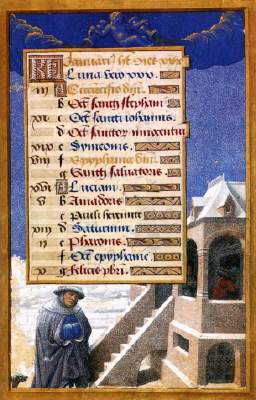 KL Januari' h̅t dies xxxi
Luna vero xxx.
iii A Circūcisio dñi.
b Oct̄ sancti stephani
xi c Oct̄ sancti iohannis
d Oct̄ sanctor innocentiū
xix e Symeonis.
viii f Epyphania dñi.
g Sancti saluatoris
xvi A Luciani.
v b Amadoris
c Pauli heremite
xiii d Saturnini.
ii e Pharonis.
f Oct̄ epyphanie
g Felicis pbri.